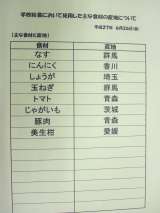 学校給食において使用した主な食材の産地について
平成27年 6月26日(金)
(主な食材と産地)
食材 産地
なす 群馬
にんにく 香川
しょうが 埼玉
玉ねぎ 群馬
トマト 青森
じゃがいも 茨城
豚肉 青森
美生柑 愛媛